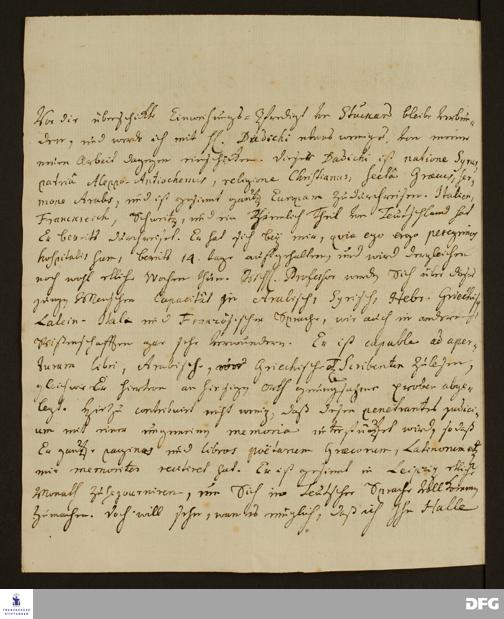 Vor die überschickte Einweihungs-Predigt bleibe verbun-
den, und werde ich mit H. Dadichi etwas weniges, von meiner
neuen Arbeit dagegen einschicken. Dieser Dadichi ist natione Syrus,
patriâ Aleppo-Antiochenus, religione Christianus, sectâ Graecus, ser-
mone Arabs, und ist gesinnt gantz Europam zu durchreisen. Italien,
Franckreich, Schweitz, und ein Theil von Teutschland hat
Er bereits durchreiset. Er hat sich bey mir, quia ego erga peregrinos
hospitalis sum, bereits 14. tage auffgehalten, und wird dergleichen
noch wohl etliche Wochen thun. Professor werden Sich über dieses
jungen Menschen Capacität in Arabisch, Syrisch, Hebr. Griechisch,
Latein. Ital. und Französischer Sprache, wie auch in anderen
Wissenschafften gar sehr verwundern. Er ist capable ad aper-
turam libri, Arabische, Griechische Scribenten zu lesen,
gleichwie Er hiervon an hiesigem Orth proben abge-
legt. Hierzu contribuirt nicht wenig, daß dessen penetrantes judici-
um mit einer ungemeinen memoria unterstützet wird, so daß
Er gantze paginas und libros poëtarum Graecorum, Latinorum etc.
mir memoriter recitiret hat. Er ist gesinnt in Leipzig etliche
Monath zu sejourniren, um Sich in Teutscher Sprache vollkommen
zu machen. Doch will sehen, wann es müglich, daß ich Ihn Halle
FRANCKESCHE STIFTUNGEN
DFG